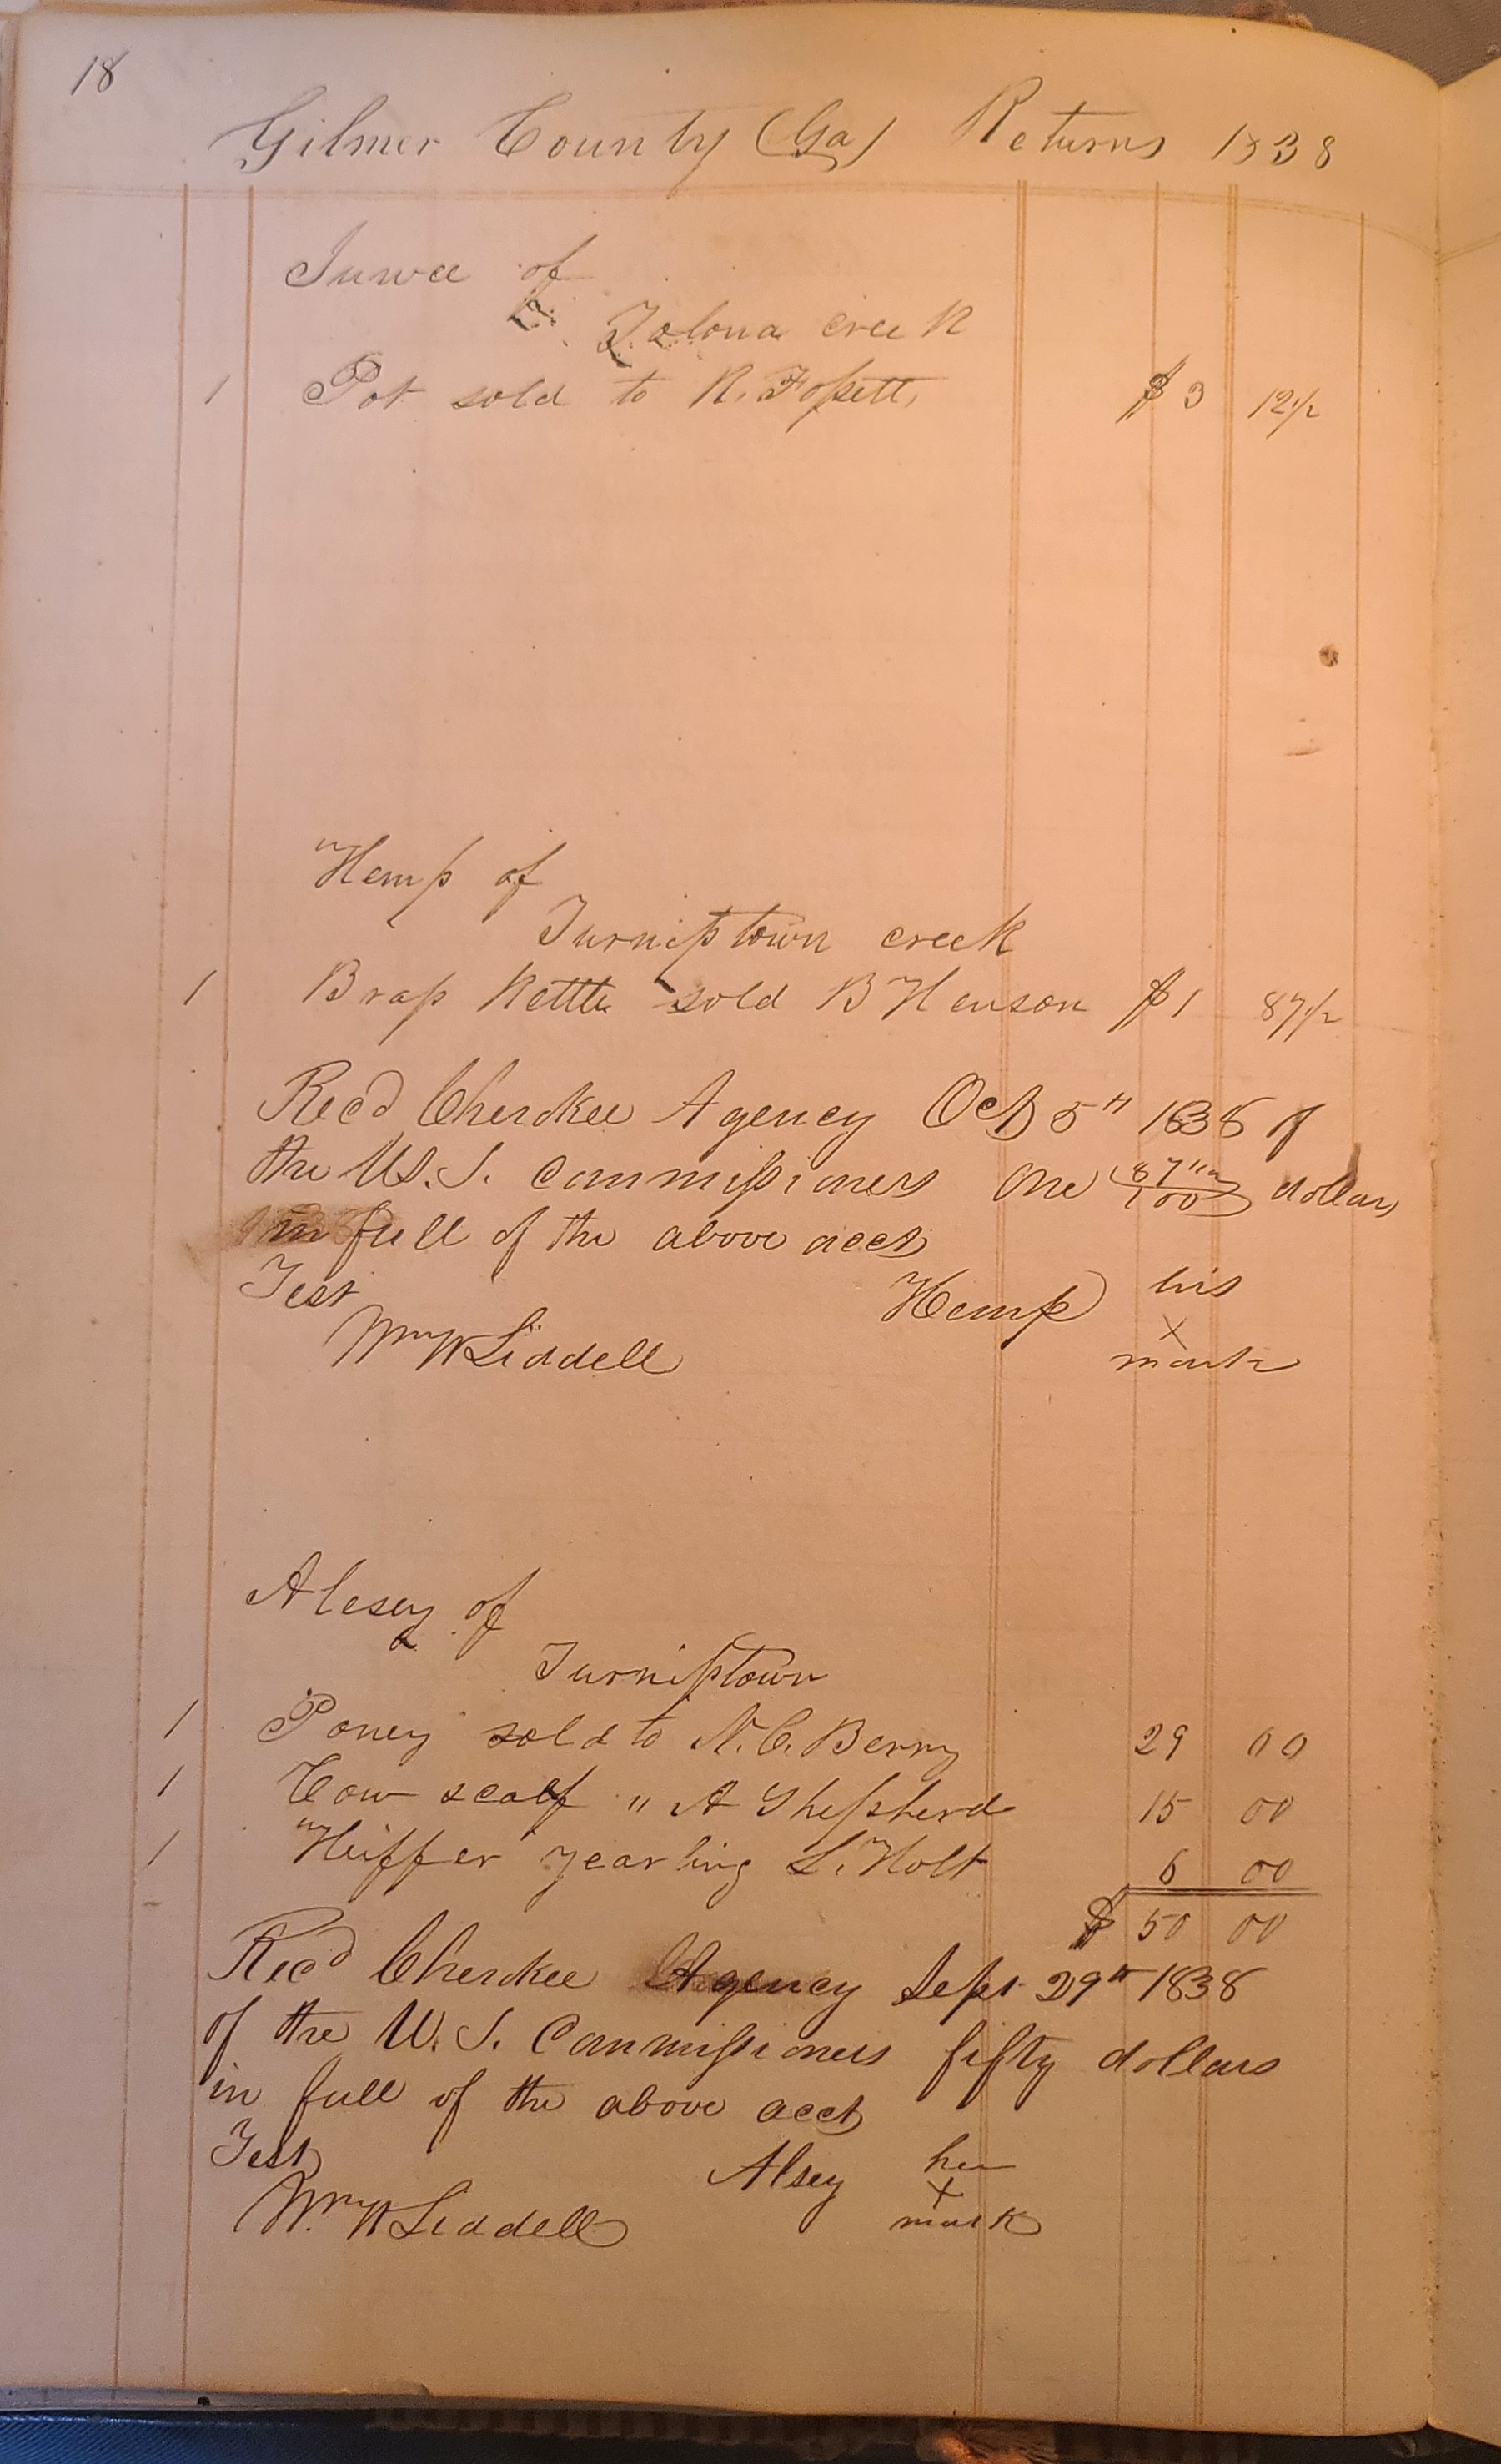 18
Gilmer County (Ga) Returns 1838
Juwee of
Talona creek
1 Pot sold to R. Fossett, $3 12 1/2
Hemp of
Turniptown creek
1 Brass Kettle sold B Henson $1 87 1/2
Recd Cherokee Agency Oct 5th 1838 of
the U.S. Commissioners One 87 1/2/100 dollars
in full of the above acct
Test
Hemp his
x
mark
Wm W Liddell
Alesey of
Turniptown
1 Poney sold to N. C. Berry 29 00
1 Cow & calf " A Shepsherd 15 00
1 Heiffer yearling L. Holt 6 00
$ 50 00
Recd Cherokee Agency Sept 29th 1838
of the U. S. Commissioners fifty dollars
in full of the above acct
Test
Alsey her
x
mark
Wm W Liddell